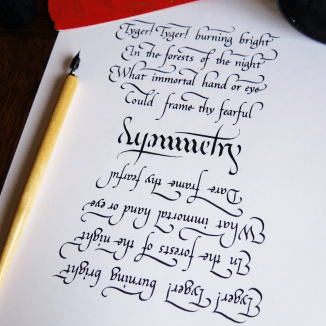 Tyger! Tyger! burning bright
In the forests of the night
What immortal hand or eye
Could frame thy fearful
symmetry
Dare frame thy fearful
What immortal hand or eye
In the forests of the night
Tyger! Tyger! burning bright